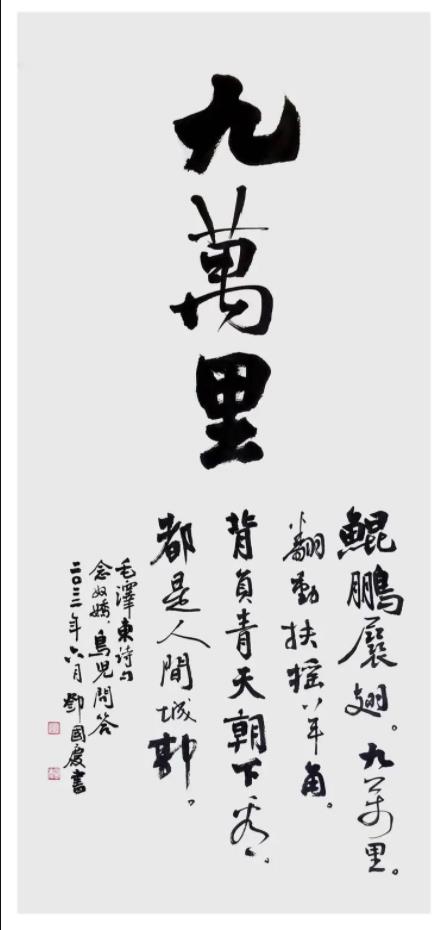 九
萬
里
鯤鵬展翅。九萬里。
翻動扶摇羊角。
背負青天朝下看。
都是人間城郭。
毛澤東诗句
念奴嬌·鳥兒問答
二〇二二年六月鄧國慶書